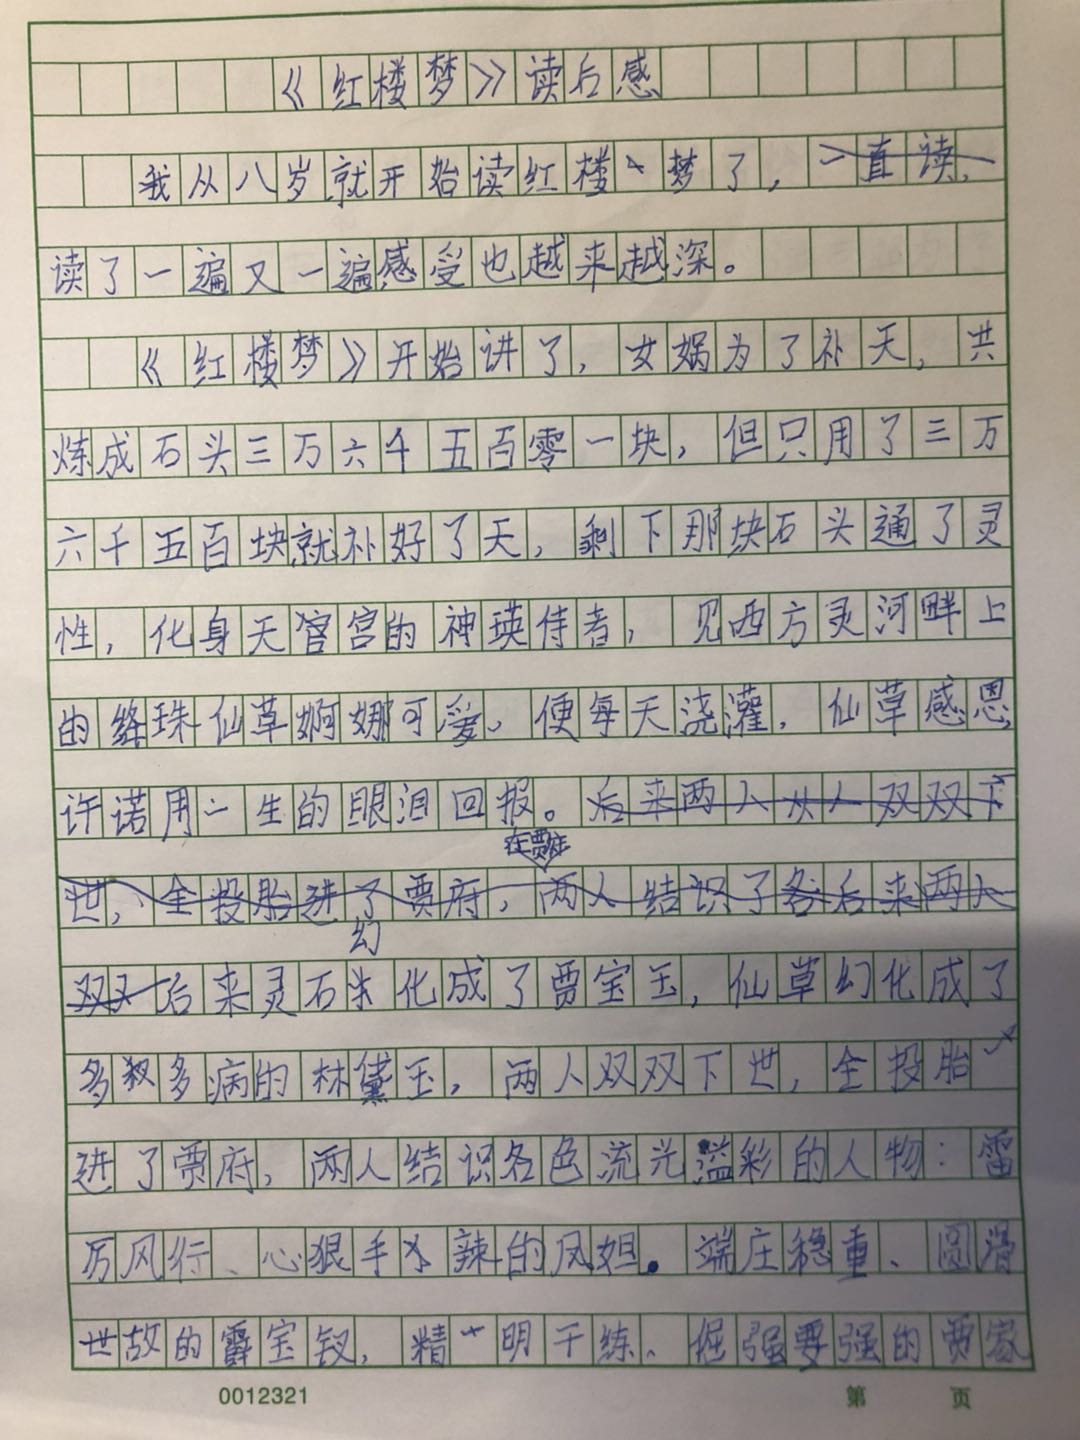 《红楼梦》读后感
我从八岁就开始读红楼、梦了，一直读，
读了一遍又一遍感受也越来越深。
《红楼梦》开始讲了，女娲为了补天，共
炼成石头三万六千五百零一块，但只用了三万
六千五百块就补好了天，剩下那块石头通了灵
性，化身天宫宫的神瑛侍者，见西方灵河畔上
的绛珠仙草婀娜可爱、便每天浇灌，仙草感恩，
许诺用一生的眼泪回报。后来两人从人双双下
在贾府
世，全投胎进了贾府，两人结识了各后来两人
幻
双双后来灵石化成了贾宝玉，仙草幻化成了
多多病的林黛玉，两人双双下世，全投胎
进了贾府，两人结识各色流光溢彩的人物：雷
厉风行、心狠手辣的凤姐。端庄稳重、圆滑
世故的宝钗，精明干练、倔强要强的贾家
0012321
第 页